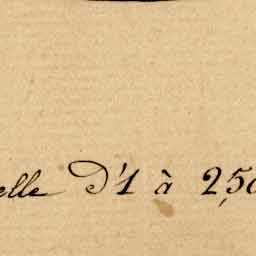 elle D'1 à 2,50